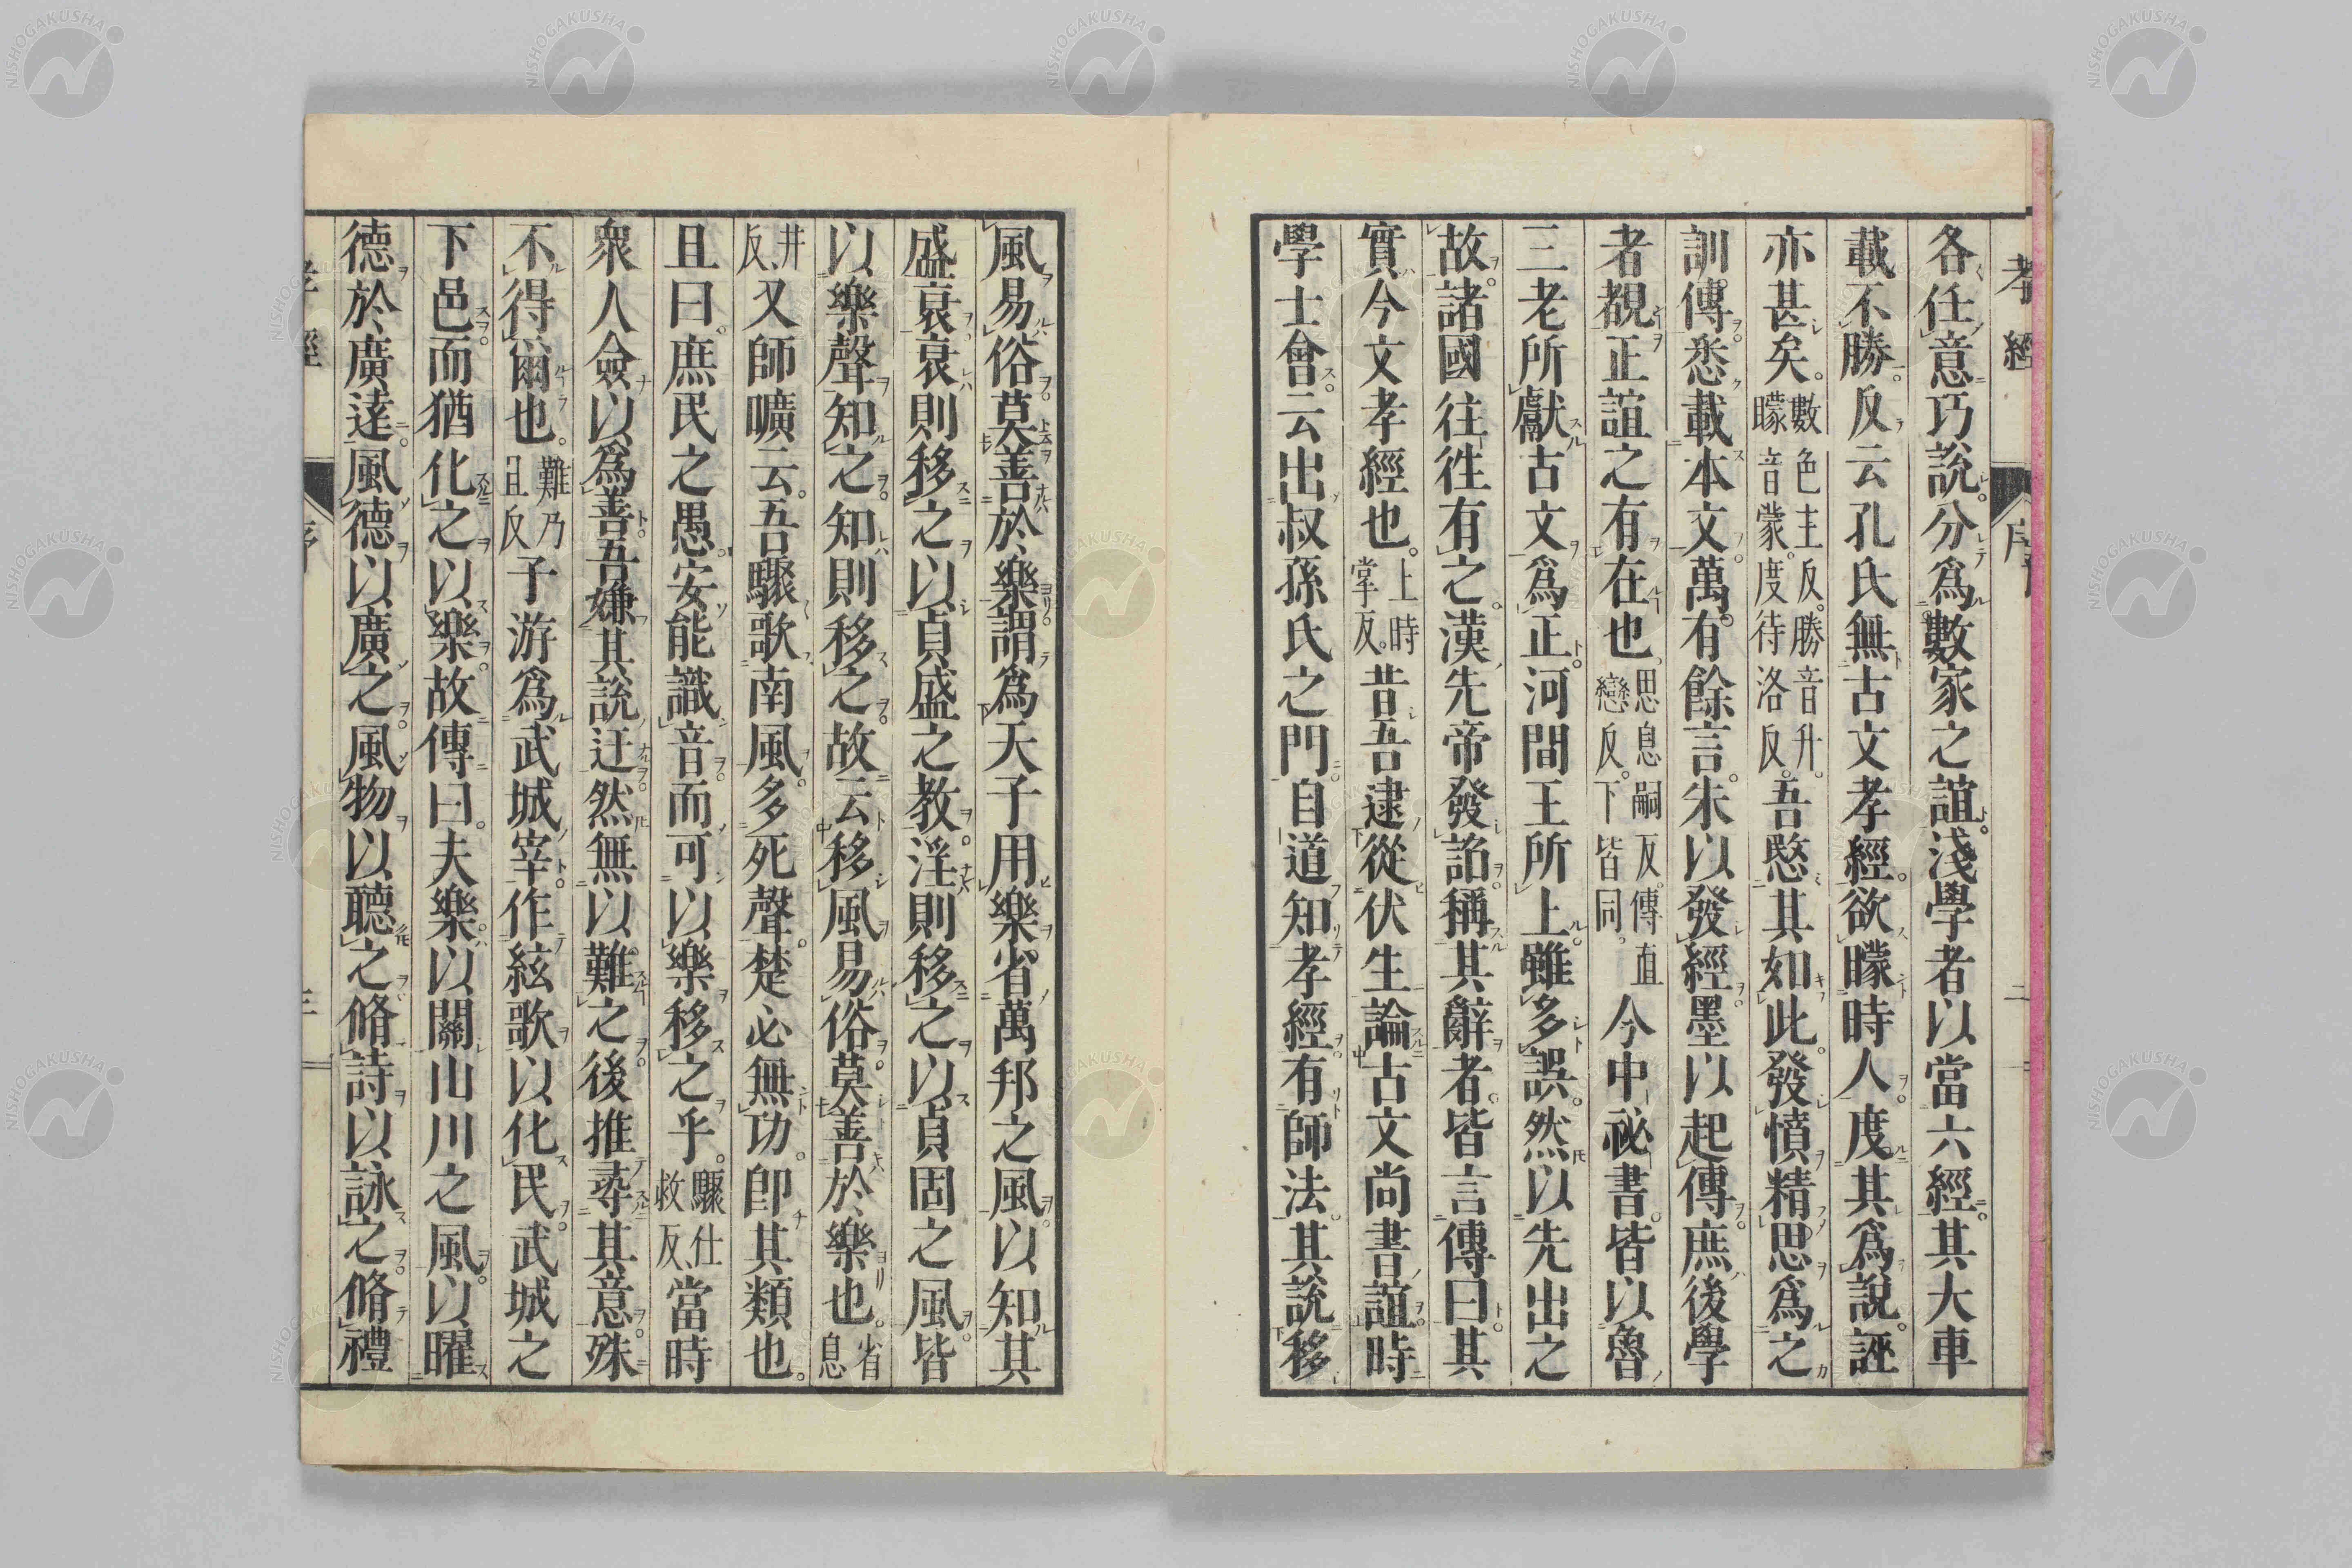 孝經 序 二
各任意巧說分爲數家之誼淺學者以當六經其大車
載不勝反云孔氏無古文孝經欲矇時人度其爲說誣
亦甚矣數色主反勝音升矇音蒙度待洛反吾愍其如此發憤精思爲之
訓傳悉載本文萬有餘言朱以發經墨以起傳庶後學
者覩正誼之有在也思息嗣反傳直戀反下皆同今中祕書皆以魯
三老所獻古文爲正河間王所上雖多誤然以先出之
故諸國往往有之漢先帝發詔稱其辭者皆言傳曰其
實今文孝經也上時掌反昔吾逮從伏生論古文尚書誼時
學士會云出叔孫氏之門自道知孝經有師法其說移
風易俗莫善於樂謂爲天子用樂省萬邦之風以知其
盛衰衰則移之以貞盛之教淫則移之以貞固之風皆
以樂聲知之知則移之故云移風易俗莫善於樂也省息
井反又師曠云吾驟歌南風多死聲楚必無功卽其類也
且曰庶民之愚安能識音而可以樂移之乎驟仕救反當時
衆人僉以爲善吾嫌其說迂然無以難之後推尋其意殊
不得爾也難乃且反子游爲武城宰作絃歌以化民武城之
下邑而猶化之以樂故傳曰夫樂以關山川之風以曜
德於廣遠風德以廣之風物以聽之脩詩以詠之脩禮
孝經 序 三
NISHOGAKUSHA